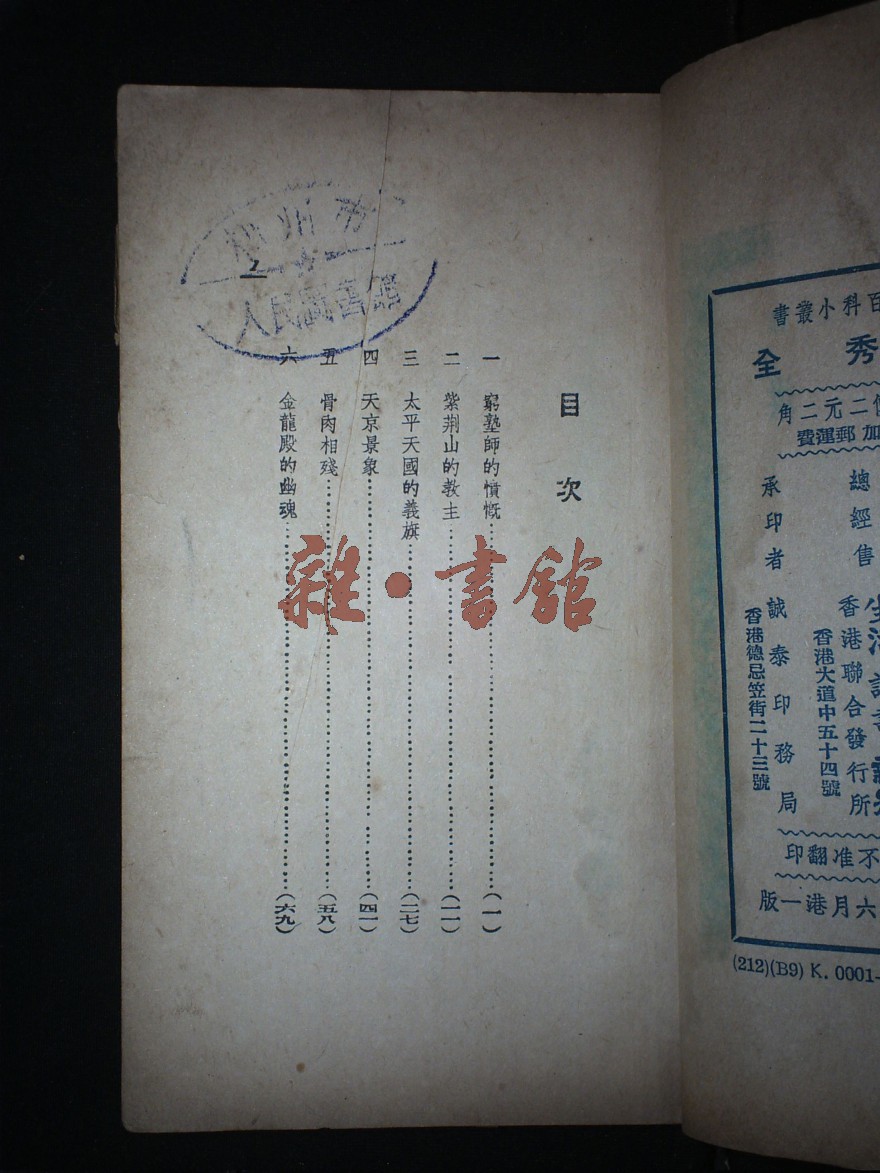 百科小叢書
秀全
二元二角
加郵運費
總經售
香港聯合發行所
香港大道中五十四號
承印者 誠泰印務局
香港德忌笠街二十三號
不准翻印
六月港一版
(212)(B9) K. 0001-
目次
一 窮塾師的憤慨……(一)
二 紫荆山的教主……(一一)
三 太平天國的義旗……(二七)
四 天京景象……(四一)
五 骨肉相殘……(五八)
六 金龍殿的幽魂……(六九)
州市
人民圖書館
雜·書舘